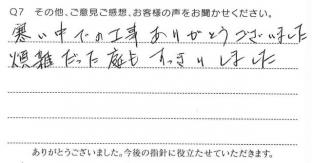 Q7 その他、ご意見ご感想、お客様の声をお聞かせください。
寒い中での工事ありがとうございました
煩雑だった庭もすっきりしました
ありがとうございました。今後の指針に役立たせていただきます。